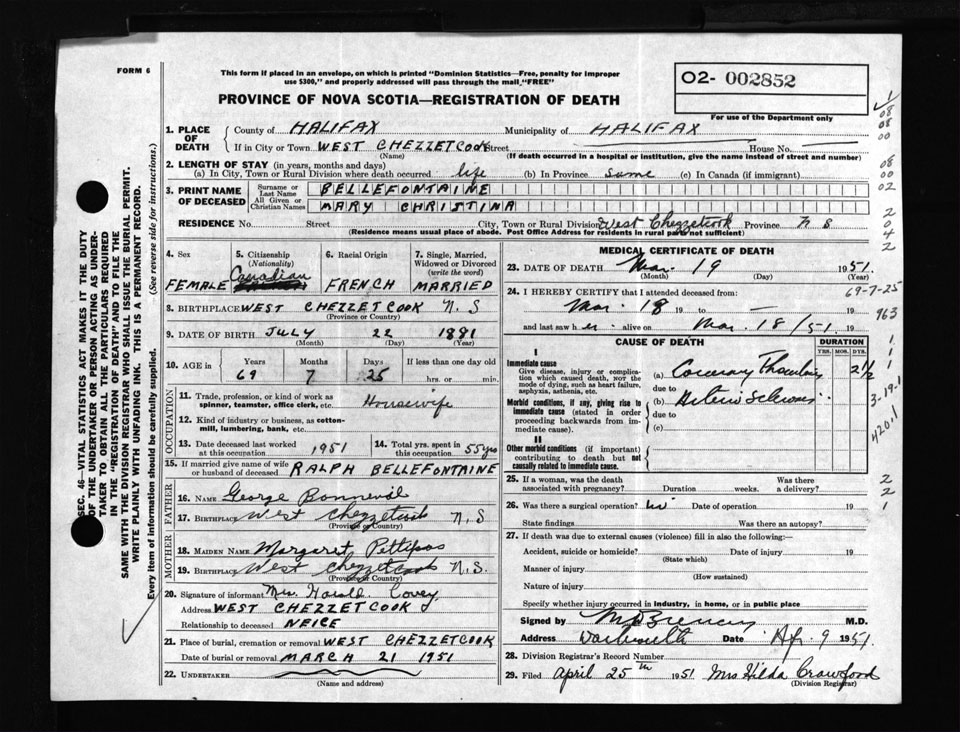 FORM 6
This form if placed in an envelope, on which is printed "Dominion Statistics—Free, penalty for improper
use $300," and properly addressed will pass through the mail "FREE"
O2- 002852
For use of the Department only
PROVINCE OF NOVA SCOTIA—REGISTRATION OF DEATH
1. PLACE OF DEATH County of HALIFAX Municipality of HALIFAX
If in City or Town WEST CHEZZETCOOK Street House No.
(Name) (If death occurred in a hospital or institution, give the name instead of street and number)
2. LENGTH OF STAY (in years, months and days)
(a) In City, Town or Rural Division where death occurred life (b) In Province Same (c) In Canada (if immigrant)
3. PRINT NAME OF DECEASED Surname or Last Name BELLEFONTAINE
All Given or Christian Names MARY CHRISTINA
RESIDENCE No. Street City, Town or Rural Division West Chezzetcook Province N S
(Residence means usual place of abode. Post Office Address for residents in rural parts not sufficient)
4. Sex FEMALE
5. Citizenship (Nationality) Canadian
6. Racial Origin FRENCH
7. Single, Married, Widowed or Divorced (write the word) MARRIED
8. BIRTHPLACE WEST CHEZZETCOOK N. S
(Province or Country)
9. DATE OF BIRTH JULY 22 1881
(Month) (Day) (Year)
10. AGE in Years Months Days If less than one day old
69 7 25 hrs. or min.
OCCUPATION
11. Trade, profession, or kind of work as spinner, teamster, office clerk, etc. Housewife
12. Kind of industry or business, as cotton-mill, lumbering, bank, etc.
13. Date deceased last worked at this occupation 1951
14. Total yrs. spent in this occupation 55 yrs
15. If married give name of wife or husband of deceased RALPH BELLEFONTAINE
FATHER
16. NAME George Bonnevil
17. Birthplace West Chezzetcook N. S
(Province or Country)
MOTHER
18. MAIDEN NAME Margaret Pettipas
19. Birthplace West Chezzetcook N. S.
(Province or Country)
20. Signature of informant Mrs. Harold Covey
Address WEST CHEZZETCOOK
Relationship to deceased NEICE
21. Place of burial, cremation or removal WEST CHEZZETCOOK
Date of burial or removal MARCH 21 1951
22. UNDERTAKER
(Name and address)
MEDICAL CERTIFICATE OF DEATH
23. DATE OF DEATH Mar. 19 1951.
(Month) (Day)
24. I HEREBY CERTIFY that I attended deceased from:
Mar 18 19 to 19
and last saw her alive on Mar. 18/51. 19
CAUSE OF DEATH DURATION
YRS. MOS. DYS.
I
Immediate cause
Give disease, injury or complication which caused death, NOT the mode of dying, such as heart failure, asphyxia, asthenia, etc.
(a) Coronary Thrombosis 2 1/2
due to
Morbid conditions, if any, giving rise to immediate cause (stated in order proceeding backwards from immediate cause).
(b) Arterio Sclerosis
due to
(c)
II
Other morbid conditions (if important) contributing to death but not causally related to immediate cause.
25. If a woman, was the death associated with pregnancy? Duration weeks. Was there a delivery?
26. Was there a surgical operation? no Date of operation 19
State findings Was there an autopsy?
27. If death was due to external causes (violence) fill in also the following:—
Accident, suicide or homicide? Date of injury 19
(State which)
Manner of injury
(How sustained)
Nature of injury
Specify whether injury occurred in industry, in home, or in public place
Signed by M.D.
Address Dartmouth Date Ap. 9 1951.
28. Division Registrar's Record Number
29. Filed April 25th 1951 Mrs Hilda Crawford
(Division Registrar)
SEC. 46—VITAL STATISTICS ACT MAKES IT THE DUTY
OF THE UNDERTAKER OR PERSON ACTING AS UNDER-
TAKER TO OBTAIN ALL THE PARTICULARS REQUIRED
IN THE "REGISTRATION OF DEATH" AND TO FILE THE
SAME WITH THE DIVISION REGISTRAR WHO SHALL ISSUE THE BURIAL PERMIT.
WRITE PLAINLY WITH UNFADING INK. THIS IS A PERMANENT RECORD.
Every item of information should be carefully supplied. (See reverse side for instructions.)
1
08
08
00
08
00
02
2
0
4
2
69-7-25
963
1
1
1
3-19.1
420.1
2
2
1